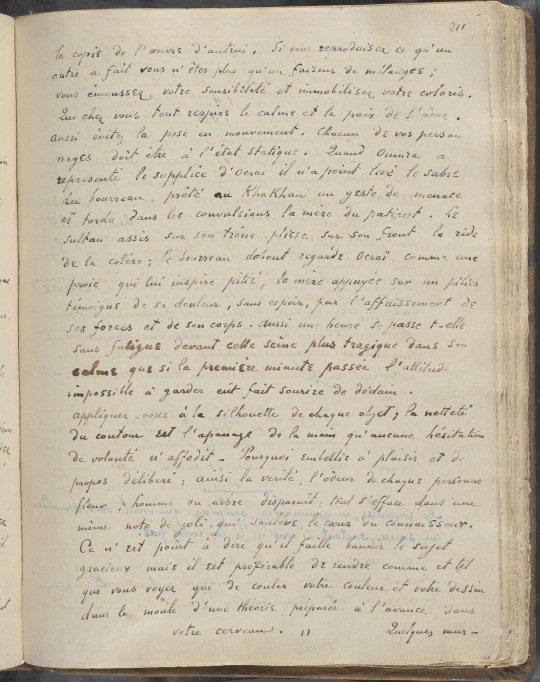 211
la copie de l'œuvre d'autrui. Si vous reproduisez ce qu'un
autre a fait vous n'êtes plus qu'un faiseur de mélanges ;
vous émoussez votre sensibilité et immobilisez votre coloris.
Que chez vous tout respire le calme et la paix de l'âme.
aussi évitez la pose en mouvement. Chacun de vos person
nages doit être à l'état statique. Quand Oumra a
représenté le supplice d'Ocraï il n'a point levé le sabre
du bourreau, prêté au KhaKhan un geste de menace
et tordu dans les convulsions la mère du patient. Le
sultan assis sur son trône plisse sur son front la ride
de la colère ; le bourreau debout regarde Ocraï comme une
proie qui lui inspire pitié, la mère appuyée sur un pilier
témoigne de sa douleur, sans espoir, par l'affaissement de
ses forces et de son corps. aussi une heure se passe t-elle
sans fatigue devant cette scène plus tragique dans son
calme que si la première minute passée l'attitude
impossible à garder eût fait sourire de dédain.
appliquez-vous à la silhouette de chaque objet ; la netteté
du contour est l'apanage de la main qu'aucune hésitation
de volonté n'affadit - Pourquoi embellir à plaisir et de
propos délibéré ; ainsi la verité, l'odeur de chaque personne
fleur, homme ou arbre disparait ; tout s'efface dans une
même note de joli qui soulève le cœur du connaisseur.
Ce n'est point à dire qu'il faille bannir le sujet
gracieux mais il est préférable de rendre comme et tel
que vous voyez que de couler votre couleur et votre dessin
dans le moule d'une théorie préparée à l'avance dans
votre cerveau. " Quelques mur-